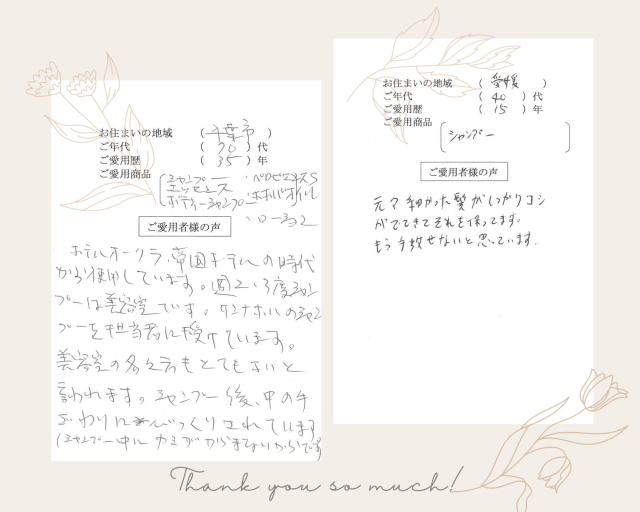 お住まいの地域 (千葉市)
ご年代 (70) 代
ご愛用歴 (35) 年
ご愛用商品
シャンプー
エッセンス
ボディーシャンプー
・ホホバオイル
・ローション
ご愛用者様の声
ホテルオークラ、帝国ホテルの時代
から使用しています。週2、3度シャン
プーは美容室です。のシャン
プーを担当者に授けています。
美容室の方もとてもよいと
言われます。シャンプー後、中の手
ざわりにびっくりされています
(シャンプー中にカミがからまないからです)
お住まいの地域 (愛媛)
ご年代 (40) 代
ご愛用歴 (15) 年
ご愛用商品
シャンプー
ご愛用者様の声
元々細かった髪がしっかりコシ
がでてきてそれを保ってます。
もう手放せないと思っています。
Thank you so much!